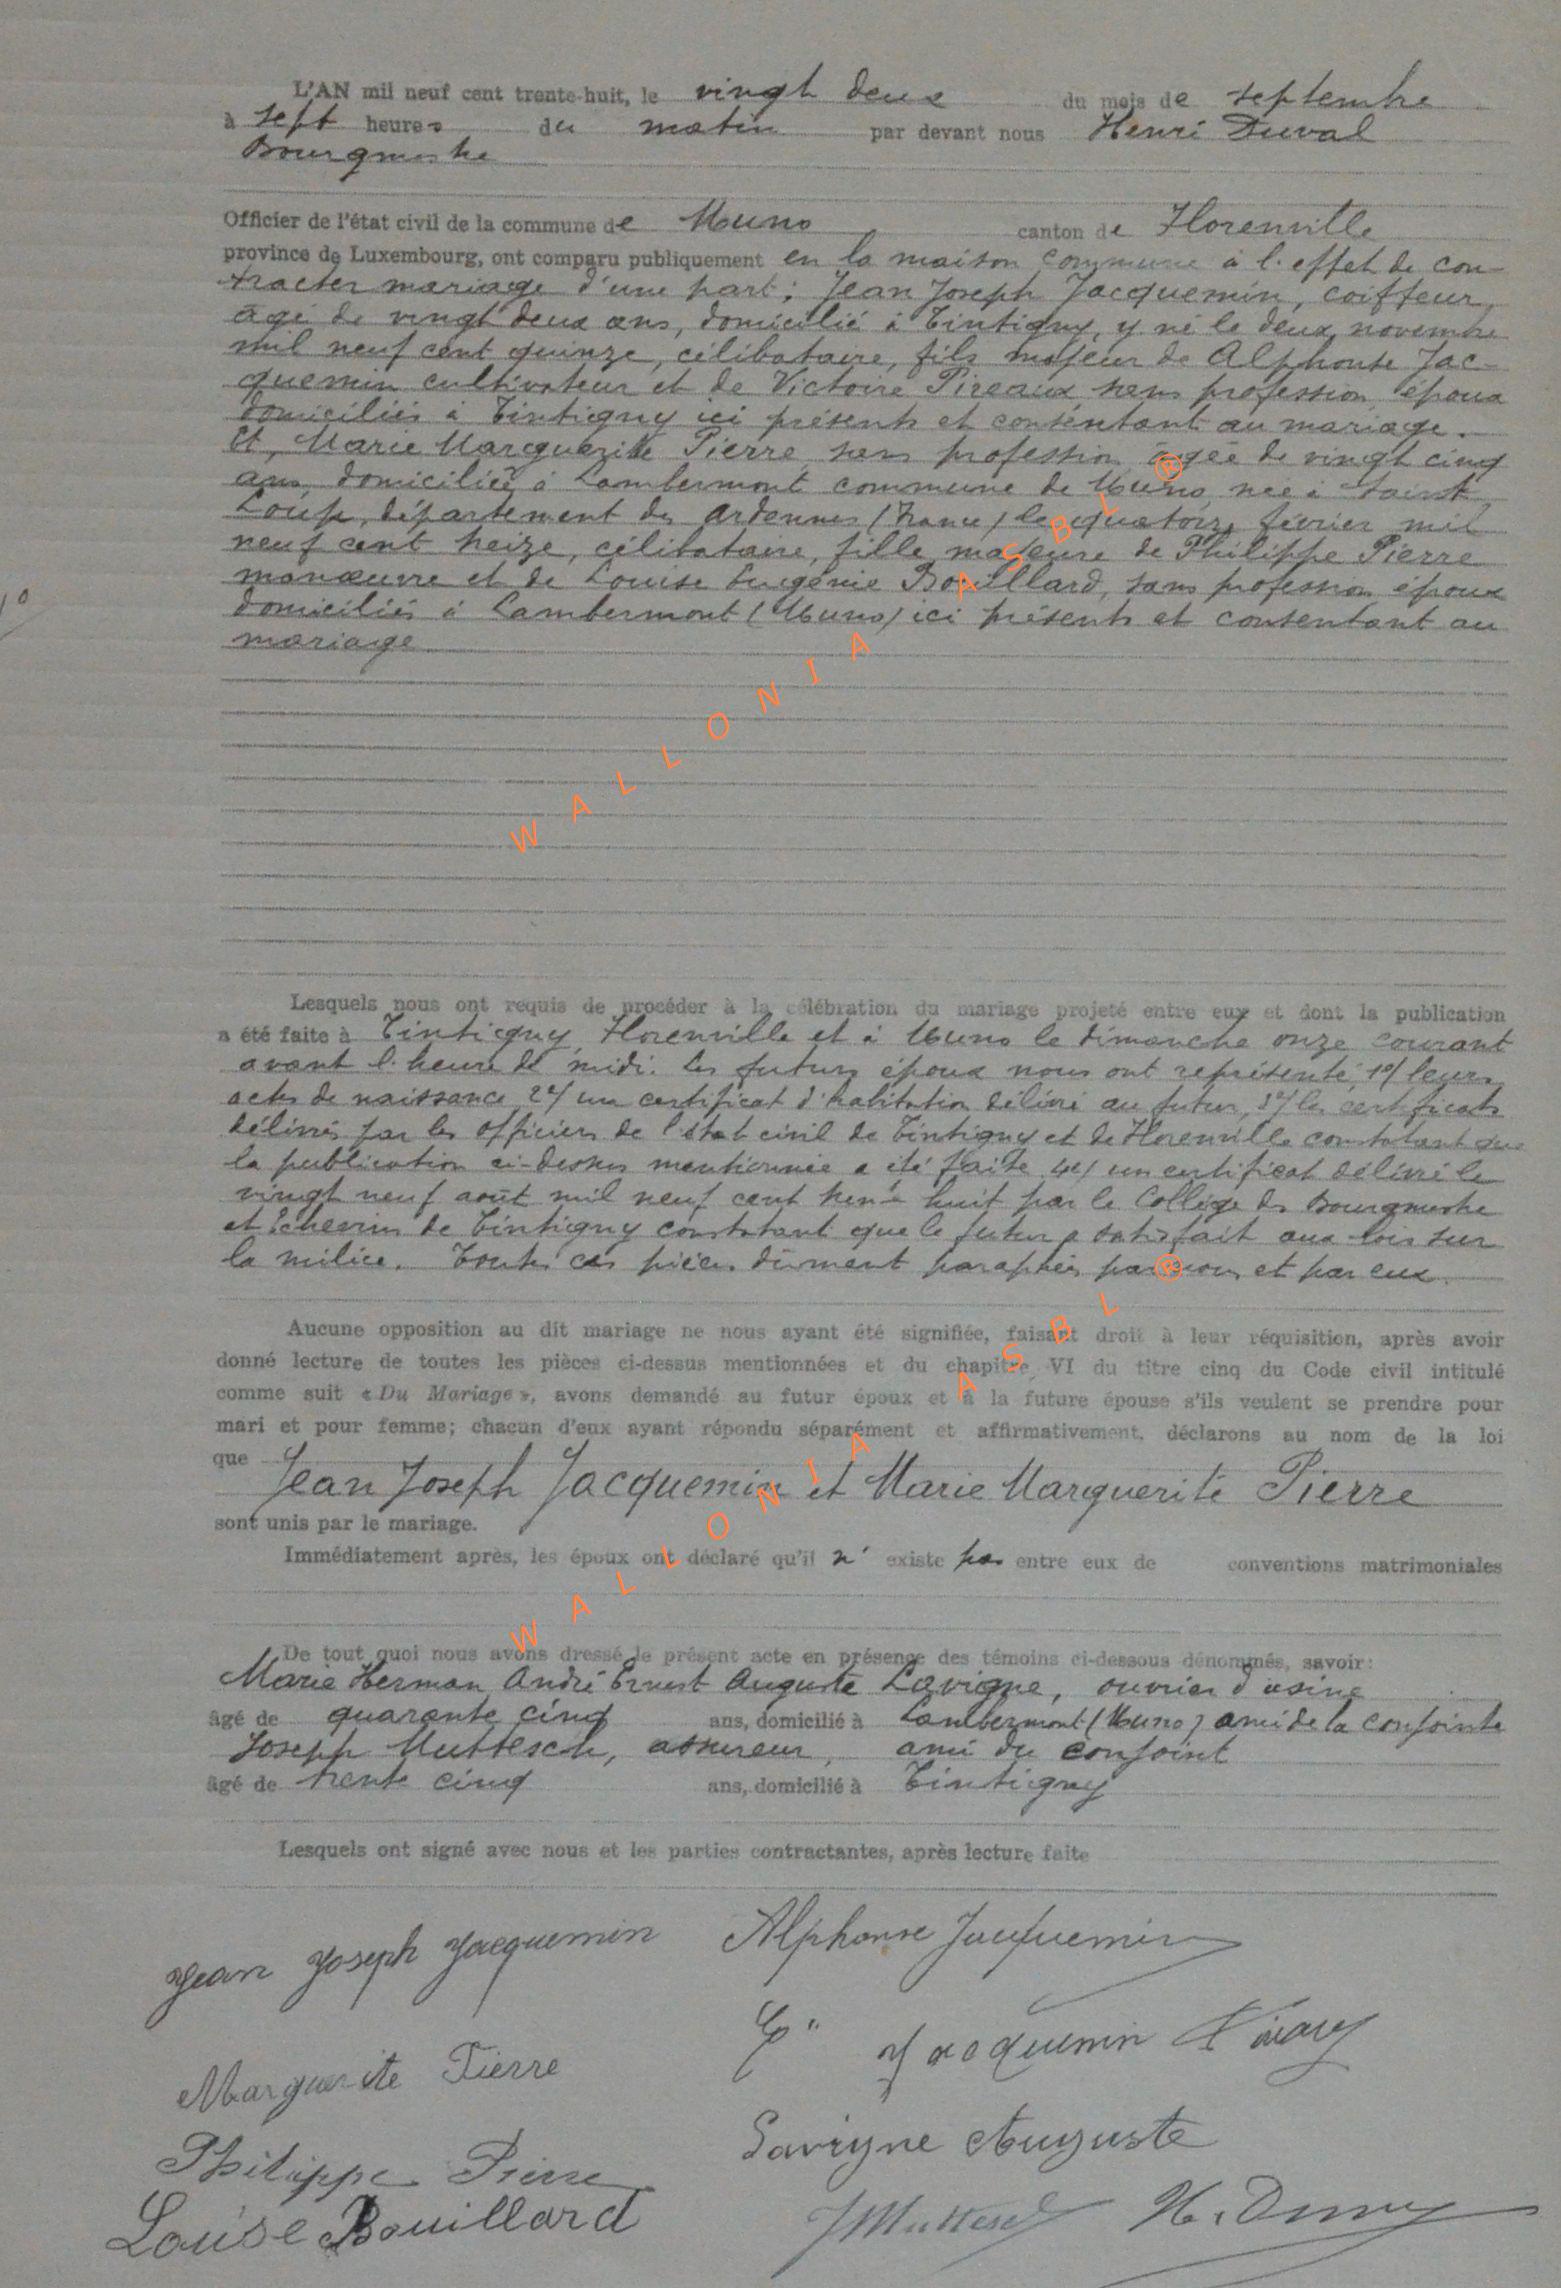 L'AN mil neuf cent trente-huit, le vingt deux du mois de septembre
à sept heures du matin par devant nous Henri Duval
Bourgmestre
Officier de l'état civil de la commune de Muno canton de Florenville
province de Luxembourg, ont comparu publiquement en la maison commune à l'effet de con-
tracter mariage d'une part: Jean Joseph Jacquemin, coiffeur,
âgé de vingt deux ans, domicilié à Tintigny, y né le deux novembre
mil neuf cent quinze, célibataire, fils majeur de Alphonse Jac-
quemin cultivateur et de Victoire Pireaux sans profession époux
domiciliés à Tintigny ici présents et consentant au mariage.
Et, Marie Marguerite Pierre sans profession âgée de vingt cinq
ans, domiciliée à Lambermont commune de Muno, née à Saint
Loup, département des Ardennes (France) le quatorze février mil
neuf cent treize, célibataire, fille majeure de Philippe Pierre
manœuvre et de Louise Eugénie Bouillard, sans profession époux
domiciliés à Lambermont (Muno) ici présents et consentant au
mariage
1°
Lesquels nous ont requis de procéder à la célébration du mariage projeté entre eux et dont la publication
a été faite à Tintigny, Florenville et à Muno le dimanche onze courant
avant l'heure de midi. Les futurs époux nous ont représenté, 1°/ leurs
actes de naissance 2°/ un certificat d'habitation délivré au futur, 3°/ les certificats
délivrés par les officiers de l'état civil de Tintigny et de Florenville constatant que
la publication ci-dessus mentionnée a été faite 4°/ un certificat délivré le
vingt neuf août mil neuf cent trente huit par le Collège des Bourgmestre
et Echevins de Tintigny constatant que le futur a satisfait aux lois sur
la milice. Toutes ces pièces dûment paraphées par nous et par eux.
Aucune opposition au dit mariage ne nous ayant été signifiée, faisant droit à leur réquisition, après avoir
donné lecture de toutes les pièces ci-dessus mentionnées et du chapitre VI du titre cinq du Code civil intitulé
comme suit « Du Mariage », avons demandé au futur époux et à la future épouse s'ils veulent se prendre pour
mari et pour femme; chacun d'eux ayant répondu séparément et affirmativement, déclarons au nom de la loi
que Jean Joseph Jacquemin et Marie Marguerite Pierre
sont unis par le mariage.
Immédiatement après, les époux ont déclaré qu'il n' existe pas entre eux de conventions matrimoniales
De tout quoi nous avons dressé le présent acte en présence des témoins ci-dessous dénommés, savoir:
Marie Herman André Ernest Auguste Lavigne, ouvrier d'usine
âgé de quarante cinq ans, domicilié à Lambermont (Muno) ami de la conjointe
Joseph Muttesch, assureur, ami du conjoint
âgé de trente cinq ans, domicilié à Tintigny
Lesquels ont signé avec nous et les parties contractantes, après lecture faite
Jean Joseph Jacquemin Alphonse Jacquemin
Jacquemin
Marguerite Pierre
Lavigne Auguste
Philippe Pierre
Louise Bouillard J Muttesch H. Duval
WALLONIA ASBL ®
WALLONIA ASBL ®